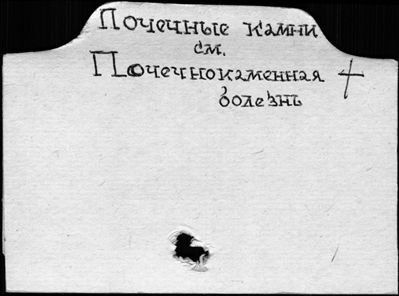 Почечные камни
см.
Почечнокаменная +
болезнь